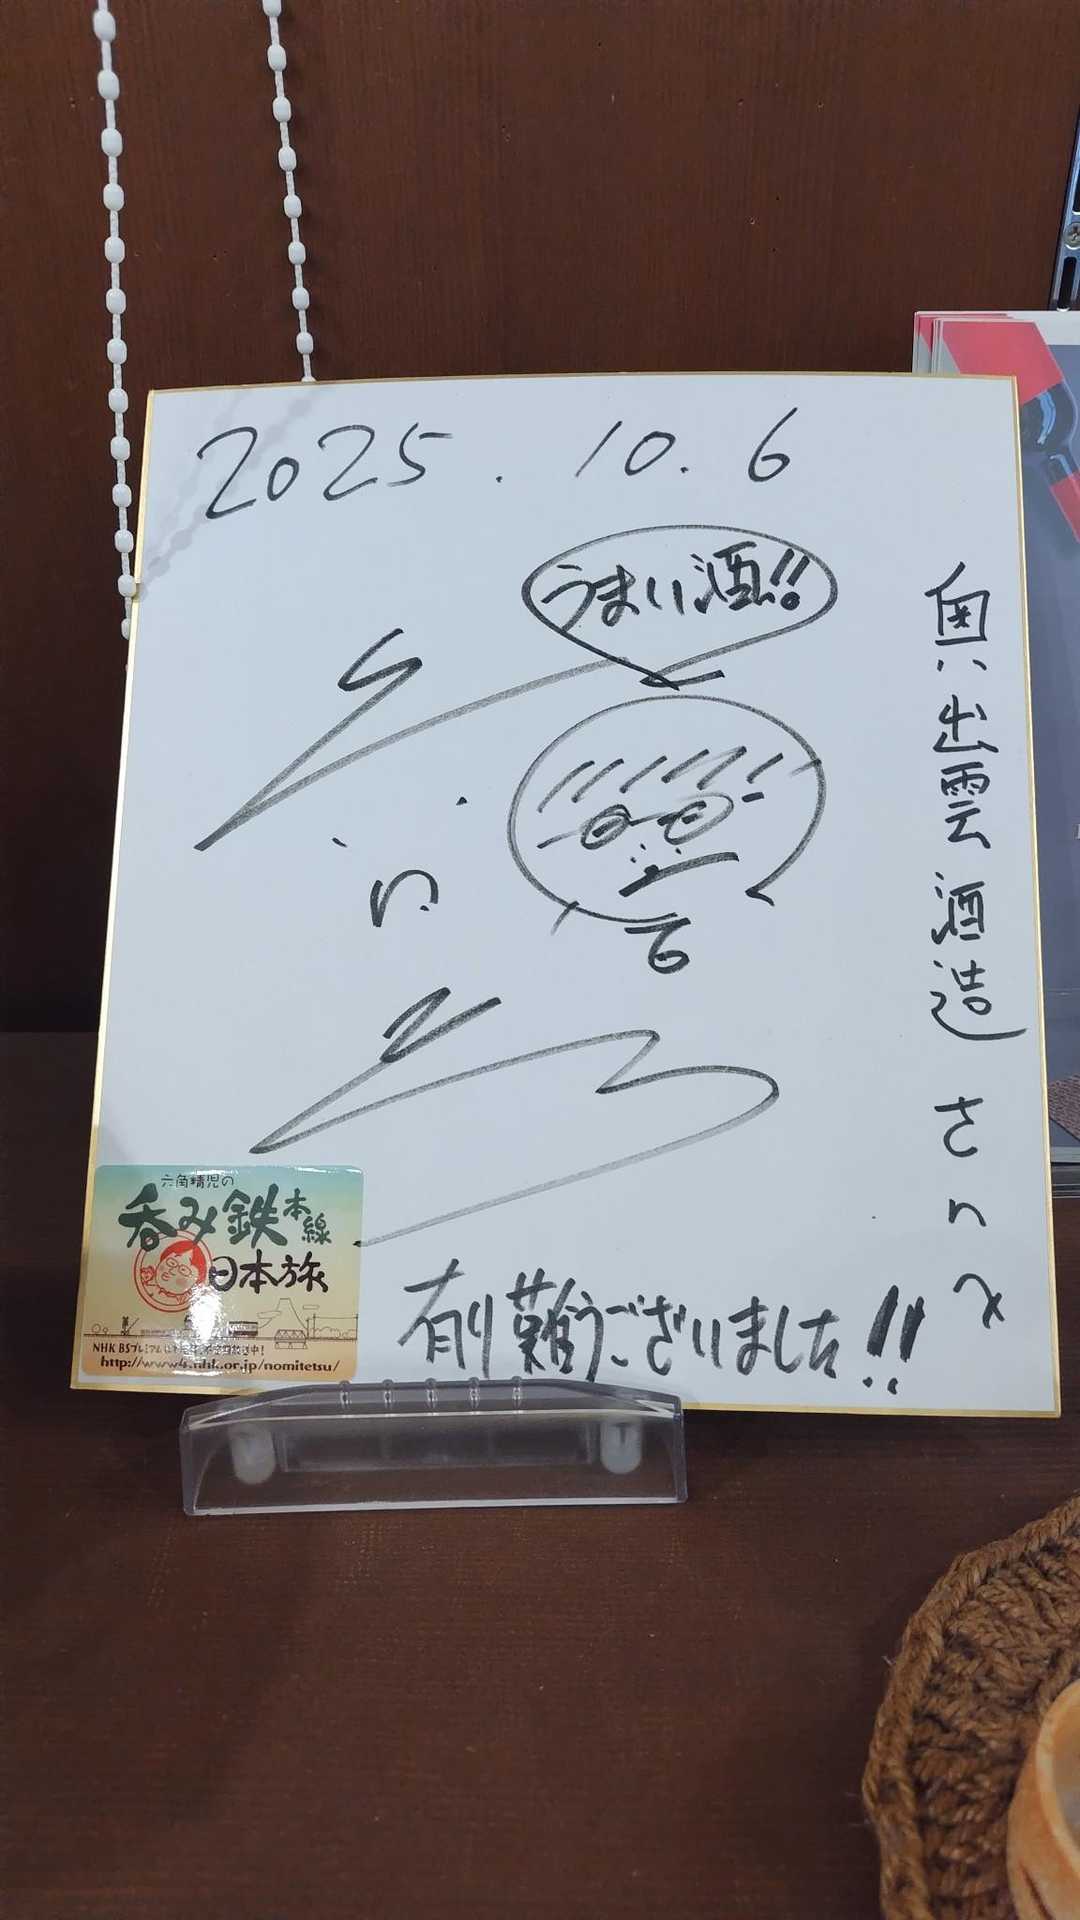 2025.10.6
うまい酒!!
奥出雲酒造さんへ
有難うございました!!
六角精児の
呑み鉄本線
日本旅
NHK BSプレミアム
http://www4.nhk.or.jp/nomitetsu/